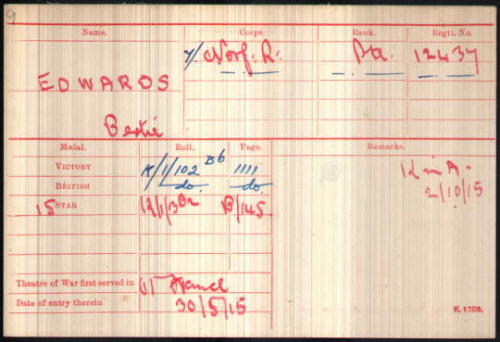 9
Name. Corps. Rank. Regtl. No.
7/ Norf. R. Pte. 12437
EDWARDS
Bertie
Medal. Roll. Page. Remarks.
VICTORY K/1/102 B6 1111 K in A-
BRITISH do. do. 2/10/15
15 STAR B/145
Theatre of War first served in (1) France
Date of entry therein 30/5/15
K. 1380.